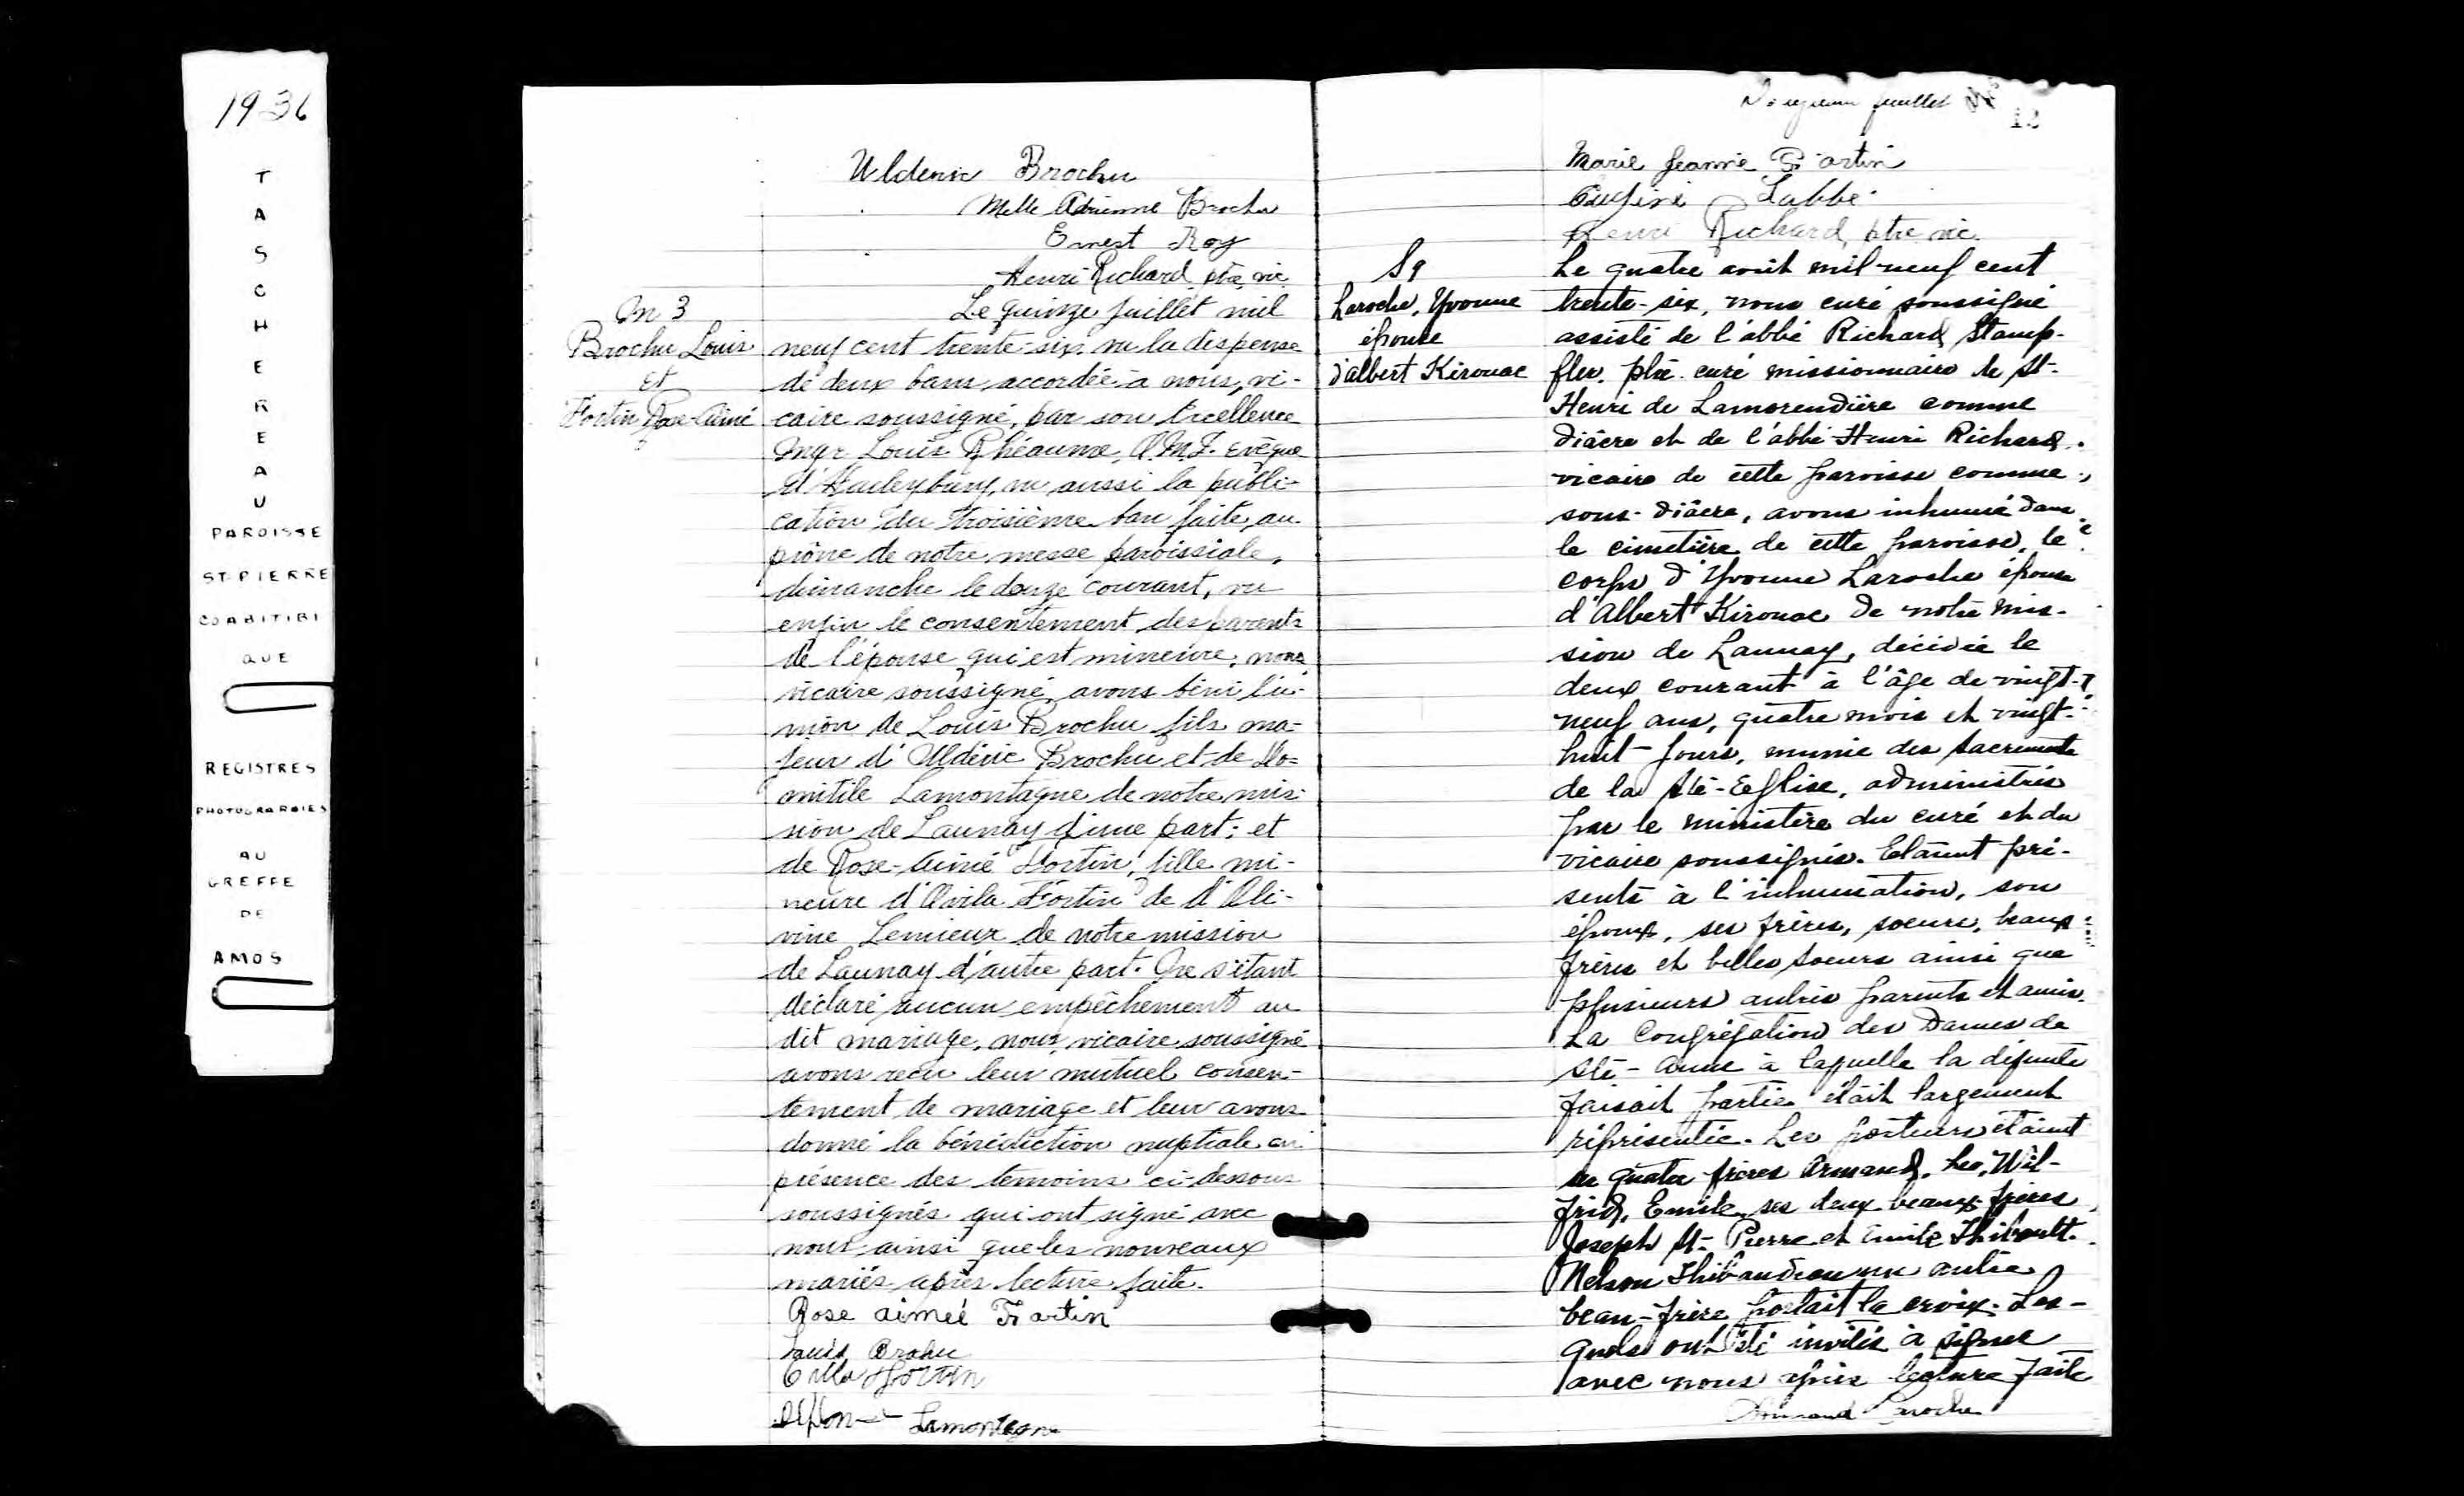 1936
T
A
S
C
H
E
R
E
A
U
PAROISSE
ST-PIERRE
CO ABITIBI
QUE
REGISTRES
PHOTOGRAPHIES
AU
GREFFE
DE
AMOS
Uldéric Brochu
Melle Adrienne Brochu
Ernest Roy
Henri Richard, ptre, vic.
M 3
Brochu Louis
et
Fortin Rose-Aimé
Le quinze juillet mil
neuf cent trente-six, vu la dispense
de deux bans accordée à nous, vi-
caire soussigné, par son Excellence
Mgr. Louis Rhéaume, O.M.I. Evêque
d'Haileybury, vu aussi la publi-
cation du troisième ban faite au
prône de notre messe paroissiale,
dimanche le douze courant, vu
enfin le consentement des parents
de l'épouse qui est mineure, nous
vicaire soussigné, avons béni l'u-
nion de Louis Brochu fils ma-
jeur d'Uldéric Brochu et de Do-
mitile Lamontagne de notre mis-
sion de Launay d'une part; et
de Rose-Aimé Fortin, fille mi-
neure d'Ovila Fortin de d'Oli-
vine Lemieux de notre mission
de Launay d'autre part. Ne s'étant
déclaré aucun empêchement au
dit mariage, nous, vicaire soussigné
avons reçu leur mutuel consen-
tement de mariage et leur avons
donné la bénédiction nuptiale en
présence des temoins ci-dessous
soussignés qui ont signé avec
nous ainsi que les nouveaux
mariés après lecture faite.
Rose aimeé Fortin
Louis Brohu
Fortin
Lamontagne
feuillet
12
Marie Jeanne Fortin
Labbé
Henri Richard, ptre vic.
S 9
Laroche, Yvonne
épouse
d'albert Kirouac
Le quatre août mil-neuf cent
trente-six, nous curé soussigné
assisté de l'abbé Richard Stamp-
fler, ptre curé missionnaire de St-
Henri de Lamorendière comme
diâcre et de l'abbé Henri Richard
vicaire de cette paroisse comme
sous-diâcre, avons inhumé dans
le cimetière de cette paroisse, le
corps d'Yvonne Laroche épouse
d'Albert Kirouac de notre mis-
sion de Launay, décédée le
deux courant à l'âge de vingt-
neuf ans, quatre mois et vingt-
huit jours, munie des sacrements
de la Ste-Eglise, administrés
par le ministère du curé et du
vicaire soussignés. Etaient pré-
sents à l'inhumation, son
époux, ses frères, soeurs, beaux-
frères et belles soeurs ainsi que
plusieurs autres parents et amis.
La Congrégation des Dames de
Ste-Anne à laquelle la défunte
faisait partie était largement
réprésentée. Les porteurs étaient
ses quatre frères Armand, Leo, Wil-
frid, Emile, ses deux beaux-frères
Joseph St-Pierre et Emile Thibault.
Nelson Thibaudeau un autre
beau-frère portait la croix. Les-
quels ont été invités à signer
avec nous après lecture faite
Armand Laroche